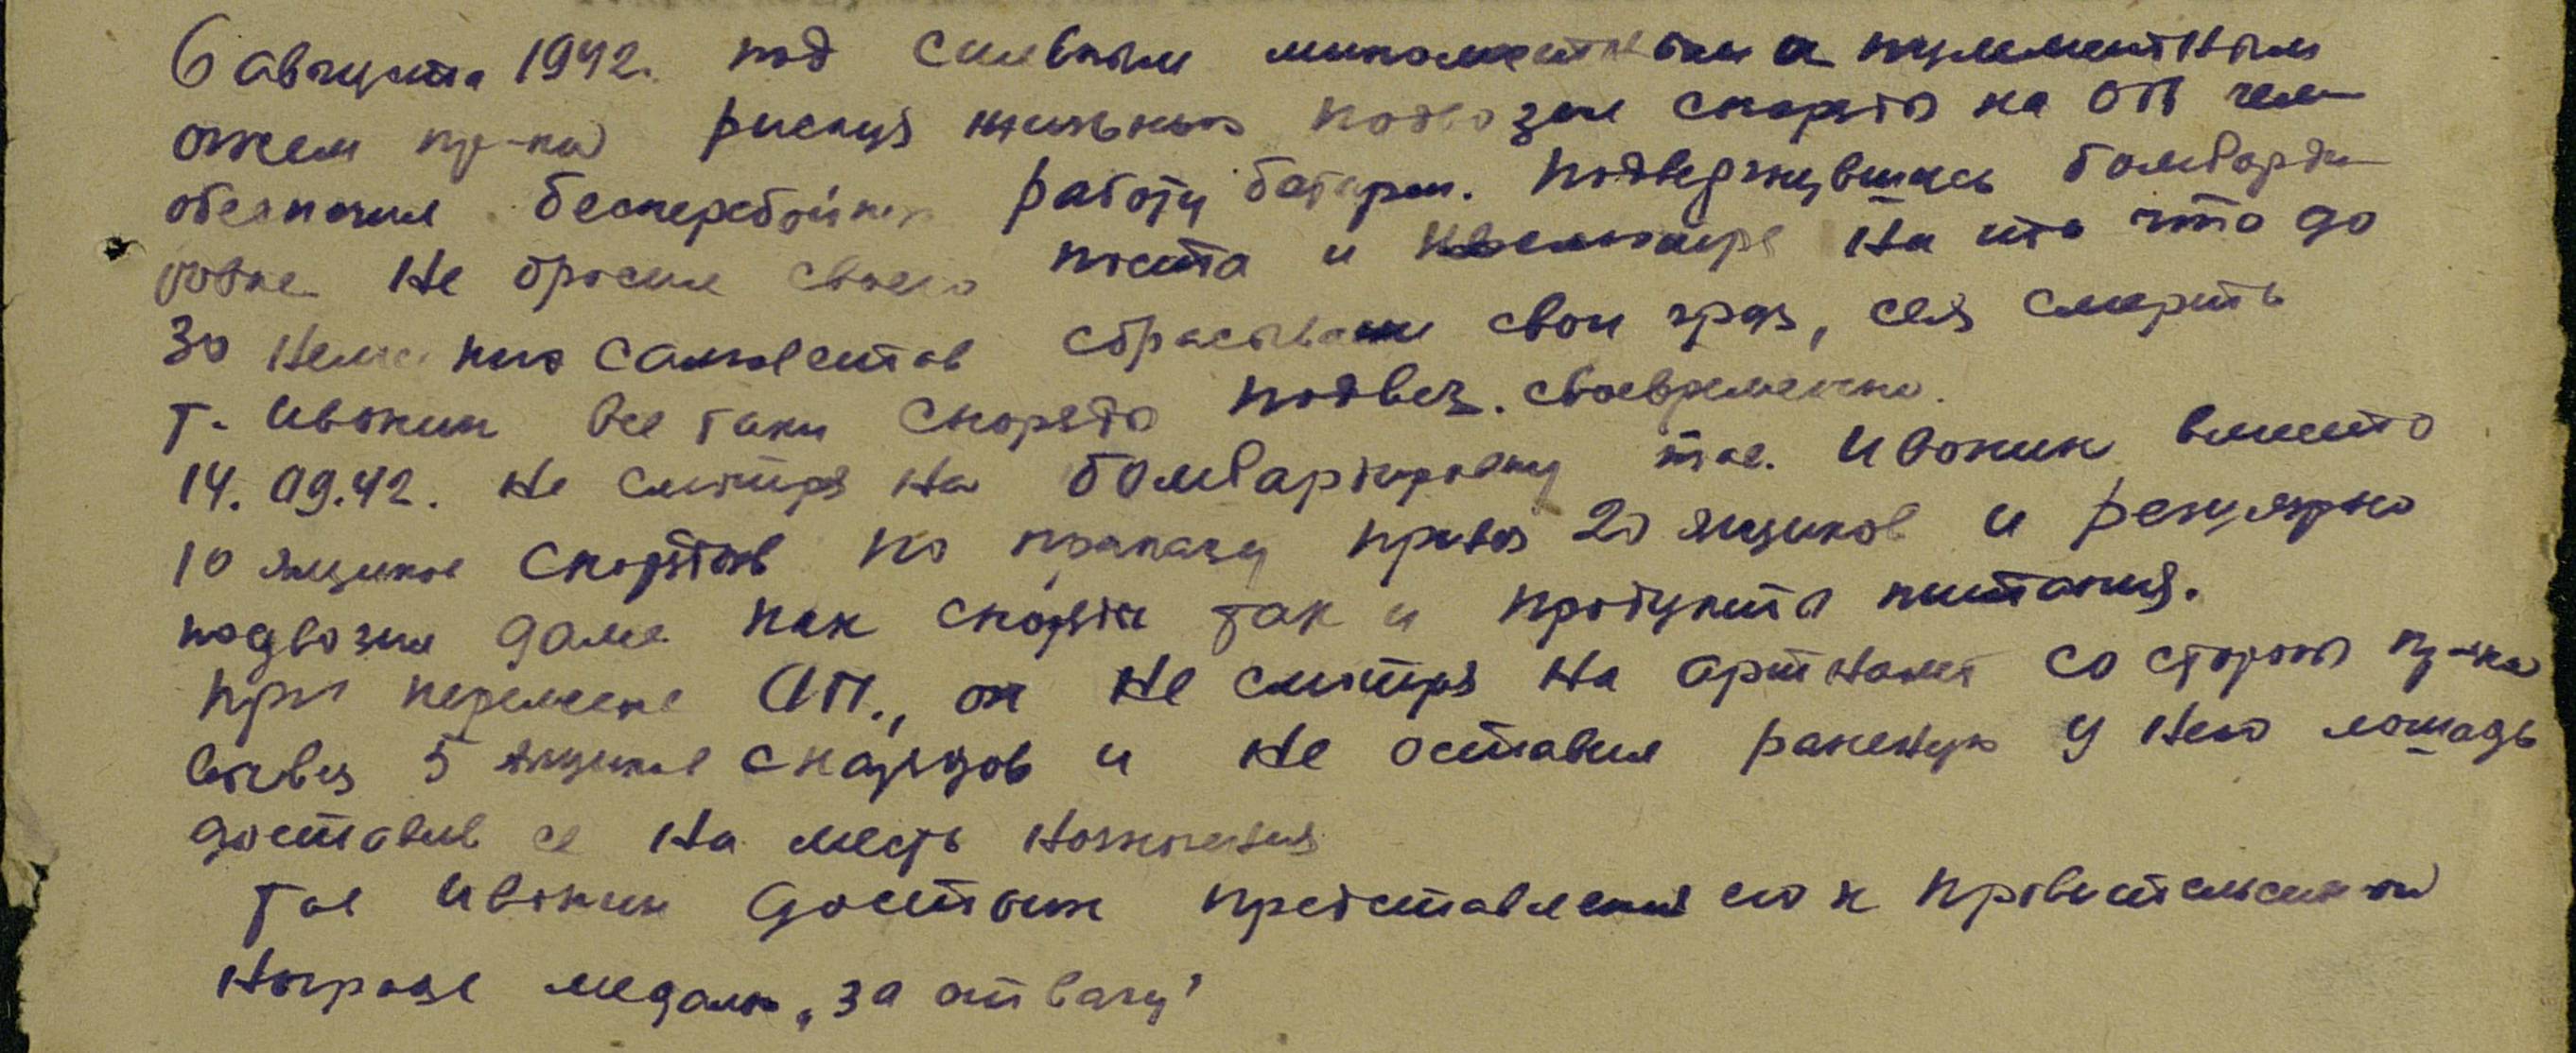 6 августа 1942. под сильным минометным и пулеметным
огнем пр-ка рискуя жизнью подвозил снаряды на ОП чем
обеспечил бесперебойную работу батареи. Подвергнувшись бомбарди
ровке не бросил своего поста и не смотря на то что до
30 немецких самолетов сбрасывали свои груз, сея смерть
т. Ивонин все таки снаряды подвез. своевременно.
14.09.42. не смотря на бомбардировку тов. Ивонин вместо
10 ящиков снарядов по приказу привез 20 ящиков и регулярно
подвозил даже как снаряды так и продукты питания.
При перемене ОП., он не смотря на артналет со стороны пр-ка
вывез 5 ящиков снарядов и не оставил раненую у него лошадь
доставив ее на место назначения
Тов Ивонин достоин представления его к правительственной
награде медалью „За отвагу"